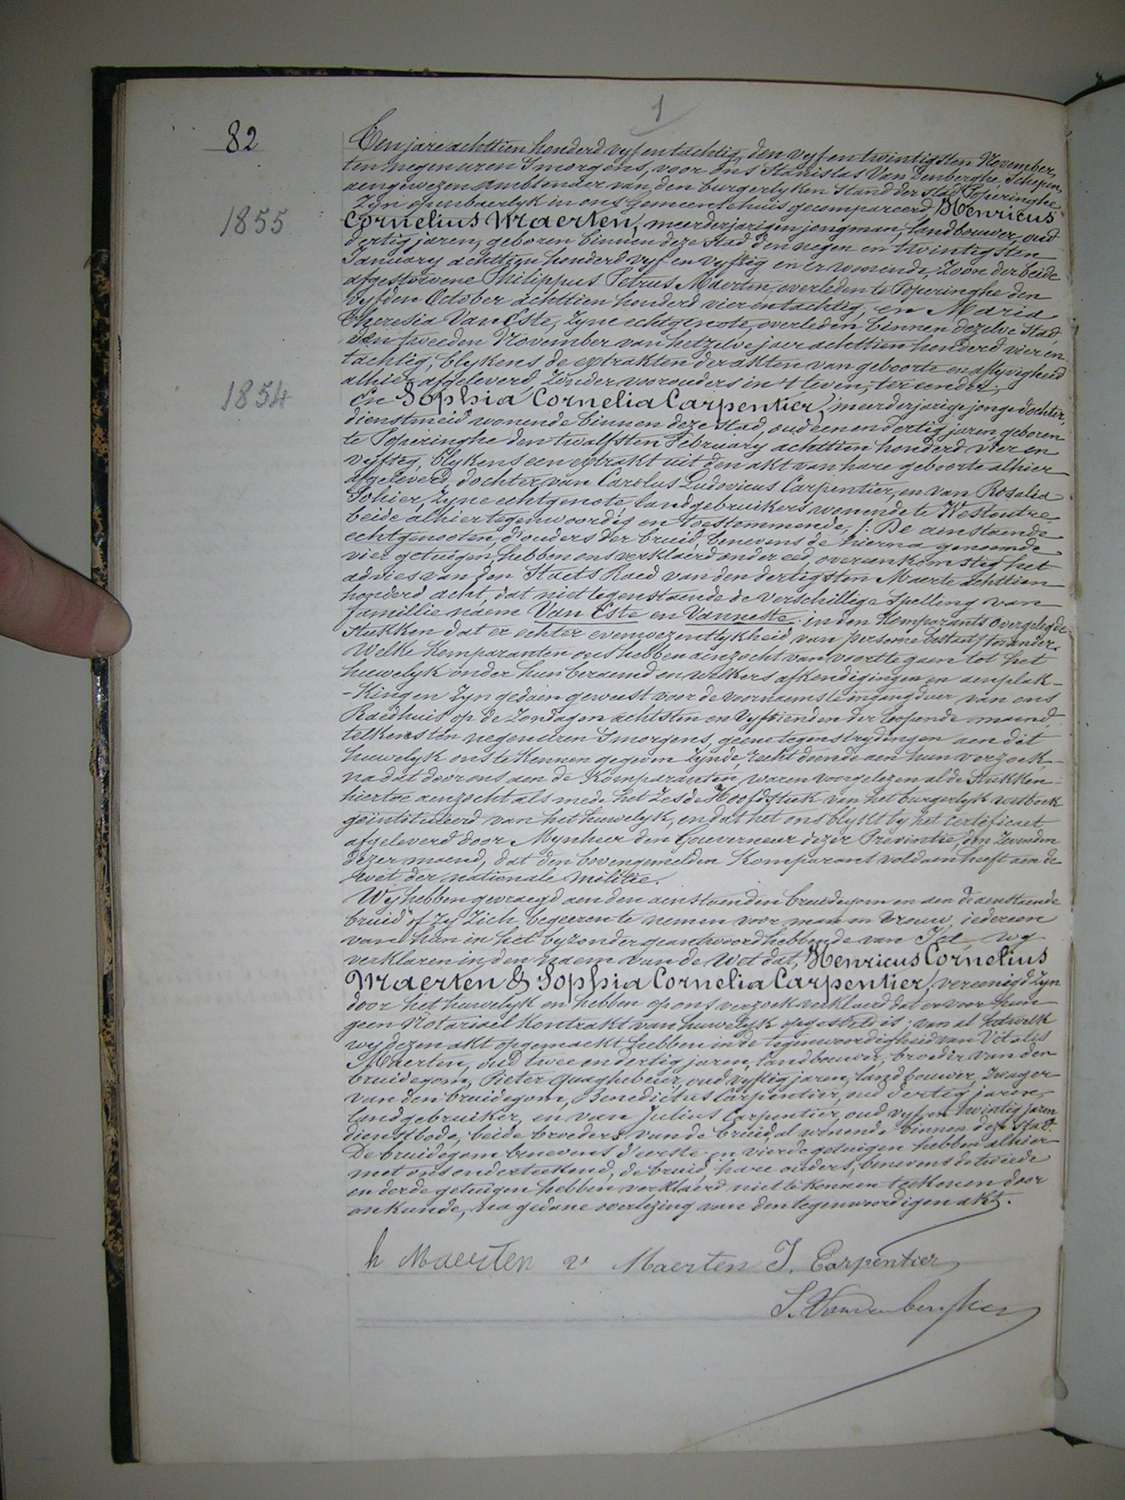 1
82
Ten jare achttien honderd vyf en tachtig, den vyf en twintigsten November,
ten negen uren 's morgens, voor ons Stanislas Van Denberghe, Schepen,
aengewezen Ambtenaer van den burgerlyken Stand der stad Poperinghe
Zyn openbaerlyk in ons gemeentehuis gecompareerd Henricus
1855
Cornelius Maerten, meerderjarigen jongman, landbouwer, oud
dertig jaren, geboren binnen deze Stad den negen en twintigsten
January achttien honderd vyf en vyftig en er wonende, Zoon der beide
afgestorvene Philippus Petrus Maerten overleden te Poperinghe den
vyfden October achttien honderd vier en tachtig, en Maria
Theresia Van Este, zyne echtgenote, overleden binnen dezelve Stad,
den tweeden November van hetzelve jaer achttien honderd vier en
tachtig, blykens de extrakten der akten van geboorte en aflyvigheid
alhier afgeleverd, zonder voorouders in 't leven, ter eender
1854
En Sophia Cornelia Carpentier, meerderjarige jonge dochter,
dienstmeid wonende binnen deze stad, oud een en dertig jaren, geboren
te Poperinghe den twalfsten February achttien honderd vier en
vyftig, blykens een extrakt uit den akt van hare geboorte alhier
afgeleverd, dochter van Carolus Ludovicus Carpentier, en van Rosalia
Sohier, zyne echtgenote, landgebruikers wonende te Westoutre
beide alhier tegenwoordig en toestemmende, /: De aenstaende
echtgenooten, d'ouders der bruid, benevens de hierna genoemde
vier getuigen hebben ons verklaerd onder eed, overeenkomstig het
advies van den Staets Raed van den dertigsten Maerte achttien
honderd acht, dat niettegenstaende de verschillige spelling van
famillie naem Van Este en Vannette in den Komparants overgelegde
stukken dat er echter evenwezentlykheid van persone bestaet /ter ander.
Welke Komparanten ons hebben aenzocht van voort te gaen tot het
huwelyk onder hun beraemd en welkers afkendigingen en aenplak-
-kingen zyn gedaen geweest voor de voornaemste ingangdeur van ons
Raedhuis op de Zondagen achtsten en vyftienden der loopende maend,
telkens ten negen uren 's morgens, geene tegenstrydingen aen dit
huwelyk ons te kennen gegeven zynde, recht doende aen hun verzoek
na dat door ons aen de Komparanten waren voorgelezen al de Stukken
hiertoe aenzocht als mede het Zesde Hoofdstuk van het burgerlyk wetboek
geintituleerd van het huwelyk, en dat het ons blykt by het certificaet
afgeleverd door Mynheer den Gouverneur dezer Provintie, den
dezer maend, dat den bovengemelden Komparant voldaen heeft aen de
wet der nationale militie.
Wy hebben gevraegd aen den aenstaenden bruidegom en aen de aenstaende
bruid of zy zich begeeren te nemen voor man en vrouw, iedereen
van hun in het byzonder geantwoord hebbende van Ja, wy
verklaren in den naem van de Wet dat, Henricus Cornelius
Maerten & Sophia Cornelia Carpentier, vereenigd zyn
door het huwelyk en hebben op ons verzoek verklaerd dat er voor hun
geen Notarieel Kontrakt van huwelyk opgesteld is; van al hetwelk
wy dezen akt opgemaekt hebben in de tegenwoordigheid van Vitalis
Maerten, oud twee en dertig jaren, landbouwer, broeder van den
bruidegom, Pieter Quaghebeur, oud vyftig jaren, landbouwer, zwager
van den bruidegom, Benedictus Carpentier, oud dertig jaren,
landgebruiker, en van Julius Carpentier, oud vyf en twintig jaren
dienstbode, beide broeders van de bruid, al wonende binnen deze stad.
De bruidegom benevens d'eerste en vierde getuigen hebben alhier
met ons onderteekend, de bruid, hare ouders, benevens de tweede
en derde getuigen hebben verklaerd niet te konnen teekenen door
onkunde, na gedane voorlezing van den tegenwoordigen akt.
h Maerten v Maerten J. Carpentier
S. Vandenberghe